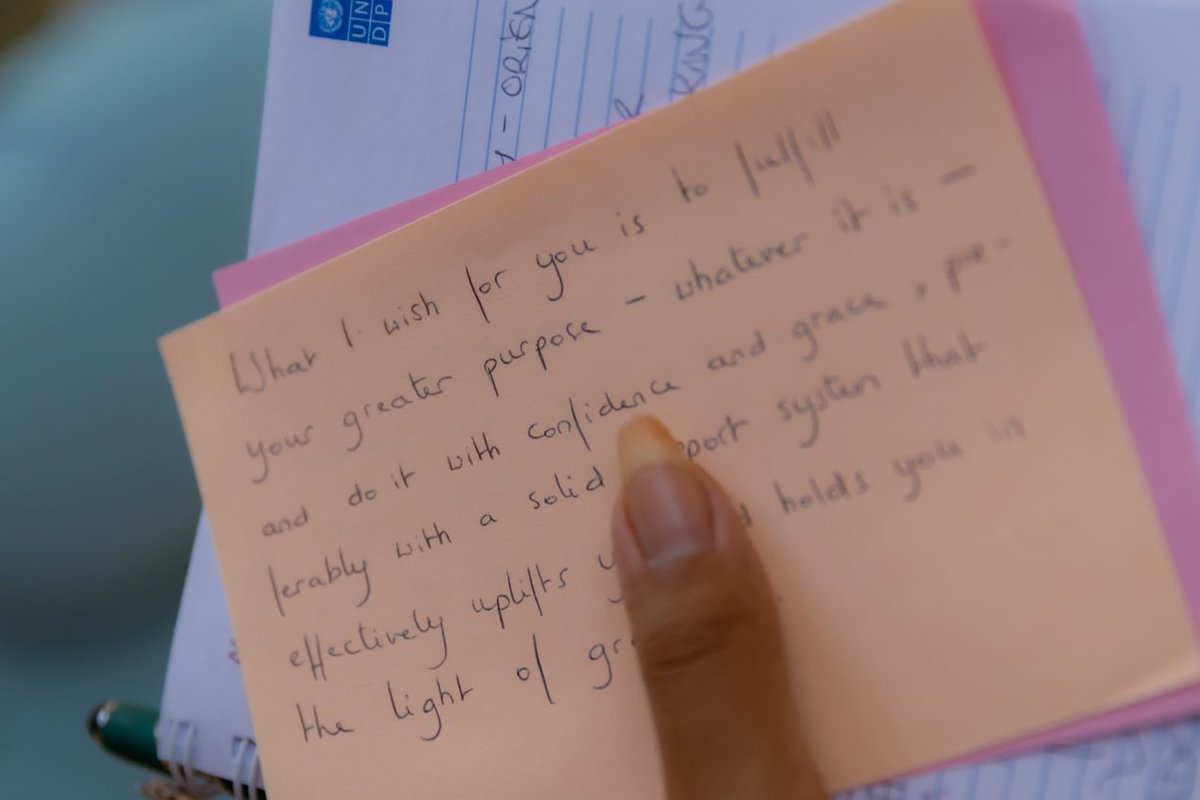 UN
DP
- ORIEN
RING
What I wish for you is to fulfill
your greater purpose - whatever it is -
and do it with confidence and grace, pre-
ferably with a solid port system that
effectively uplifts holds you in
the light of